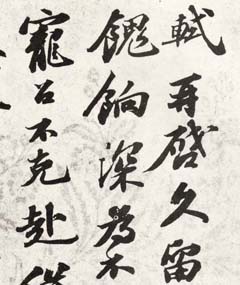 軾再啓久留
餽餉深為不
寵召不克赴